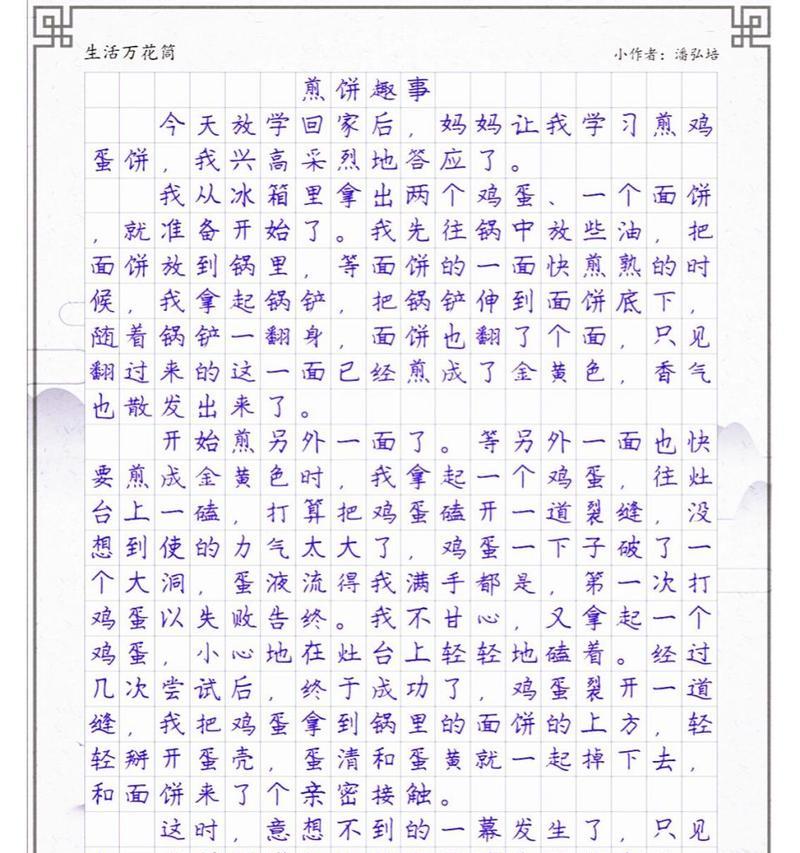 生活万花筒
小作者：潘弘培
煎饼趣事
今天放学回家后，妈妈让我学习煎鸡
蛋饼，我兴高采烈地答应了。
我从冰箱里拿出两个鸡蛋、一个面饼
，就准备开始了。我先往锅中放些油，把
面饼放到锅里，等面饼的一面快煎熟的时
候，我拿起锅铲，把锅铲伸到面饼底下，
随着锅铲一翻身，面饼也翻了个面，只见
翻过来的这一面已经煎成了金黄色，香气
也散发出来了。
开始煎另外一面了。等另外一面也快
要煎成金黄色时，我拿起一个鸡蛋，往灶
台上一磕，打算把鸡蛋磕开一道裂缝，没
想到使的力气太大了，鸡蛋一下子破了一
个大洞，蛋液流得我满手都是，第一次打
鸡蛋以失败告终。我不甘心，又拿起一个
鸡蛋，小心地在灶台上轻轻地磕着。经过
几次尝试后，终于成功了，鸡蛋裂开一道
缝，我把鸡蛋拿到锅里的面饼的上方，轻
轻掰开蛋壳，蛋清和蛋黄就一起掉下去，
和面饼来了个亲密接触。
这时，意想不到的一幕发生了，只见